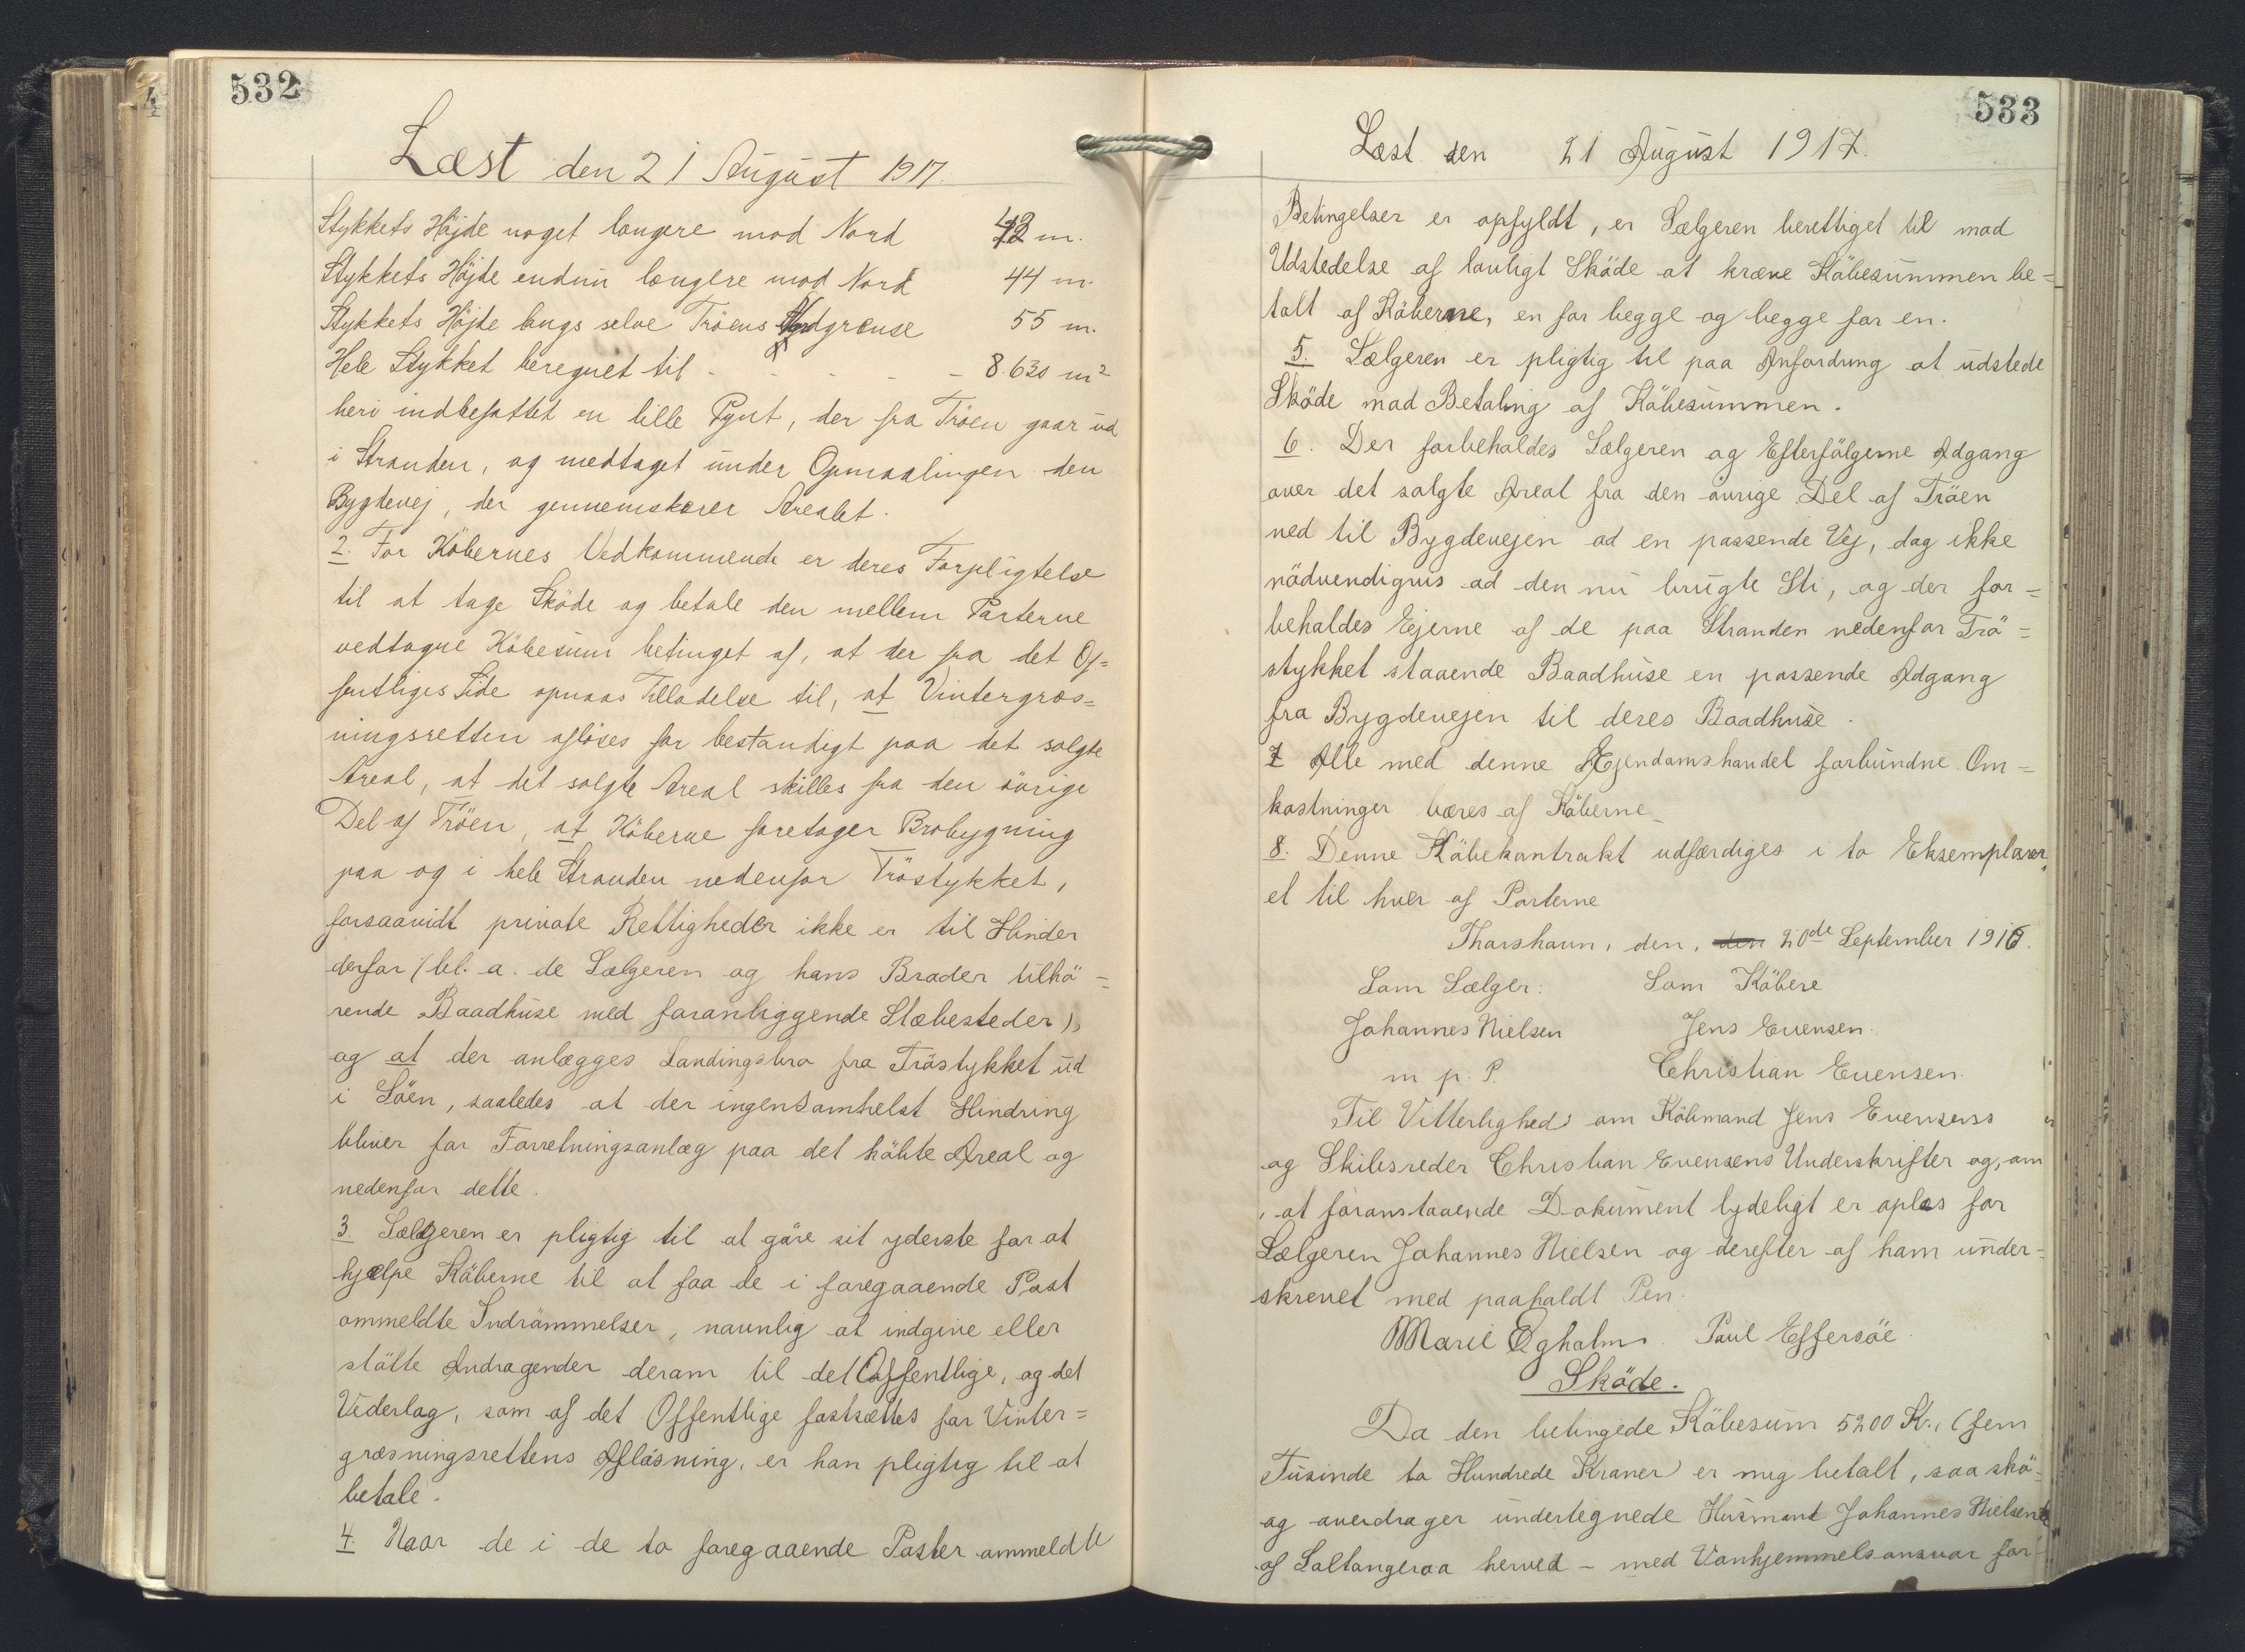 532
Læst den 21 August 1917.
Stykkets Höjde noget længere mod Nord 42 m.
Stykkets Höjde endnu længere mod Nord 44 m.
Stykkets Höjde langs selve Tröens Nordgrænse 55 m.
Hele Stykket beregnet til - - - - - 8.630 m²
heri indbefattet en lille Pynt, der fra Tröen gaar ud
i Stranden, og medtaget under Opmaalingen den
Bygdevej, der gennemskærer Arealet.
2. For Köbernes Vedkommende er deres Forpligtelse
til at tage Sköde og betale den mellem Parterne
vedtagne Köbesum betinget af, at der fra det Of=
fentliges Side opnaas Tilladelse til, at Vintergræs=
ningsretten aflöses for bestandigt paa det solgte
Areal, at det solgte Areal skilles fra den övrige
Del af Tröen, at Köberne foretager Brobygning
paa og i hele Stranden nedenfor Tröstykket,
forsaavidt private Rettigheder ikke er til Hinder
derfor (bl. a. de Sælgeren og hans Broder tilhö=
rende Baadhuse med foranliggende Stæbesteder),
og at der anlægges Landingsbro fra Tröstykket ud
i Söen, saaledes at der ingensomhelst Hindring
bliver for Forretningsanlæg paa det köbte Areal og
nedenfor dette.
3. Sælgeren er pligtig til at göre sit yderste for at
hjælpe Köberne til at faa de i foregaaende Post
ommeldte Indrömmelser, navnlig at indgive eller
stötte Andragender derom til det Offentlige, og det
Vederlag, som af det Offentlige fastsættes for Vinter=
græsningsrettens Aflösning, er han pligtig til at
betale.
4. Naar de i de to foregaaende Poster ommeldte
533
Læst den 21 August 1917.
Betingelser er opfyldt, er Sælgeren berettiget til mod
Udstedelse af lovligt Sköde at kræve Köbesummen be=
talt af Köberne, en for begge og begge for en.
5. Sælgeren er pligtig til paa Anfordring at udstede
Sköde mod Betaling af Köbesummen.
6. Der forbeholdes Sælgeren og Efterfölgerne Adgang
over det solgte Areal fra den övrige Del af Tröen
ned til Bygdevejen ad en passende Vej, dog ikke
nödvendigvis ad den nu brugte Sti, og der for=
beholdes Ejerne af de paa Stranden nedenfor Trö=
stykket staaende Baadhuse en passende Adgang
fra Bygdevejen til deres Baadhuse.
7 Alle med denne Ejendomshandel forbundne Om=
kostninger bæres af Köberne_
8. Denne Köbekontrakt udfærdiges i to Eksemplarer,
et til hver af Parterne
Thorshavn, den, den 20de September 1916.
Som Sælger: Som Köbere
Johannes Nielsen Jens Evensen.
m p. P. Christian Evensen.
Til Vitterlighed om Köbmand Jens Evensens
og Skibsreder Christian Evensens Underskrifter og, om
, at foranstaaende Dokument lydeligt er oplæs for
Sælgeren Johannes Nielsen og derefter af ham under=
skrevet med paaholdt Pen.
Marie Egholm. Paul Effersöe.
Sköde.
Da den betingede Köbesum 5200 Kr., (fem
Tusinde to Hundrede Kroner) er mig betalt, saa skö-
og overdrager undertegnede Husmand Johannes Nielsen
af Saltangeraa herved - med Vanhjemmelsansvar for-